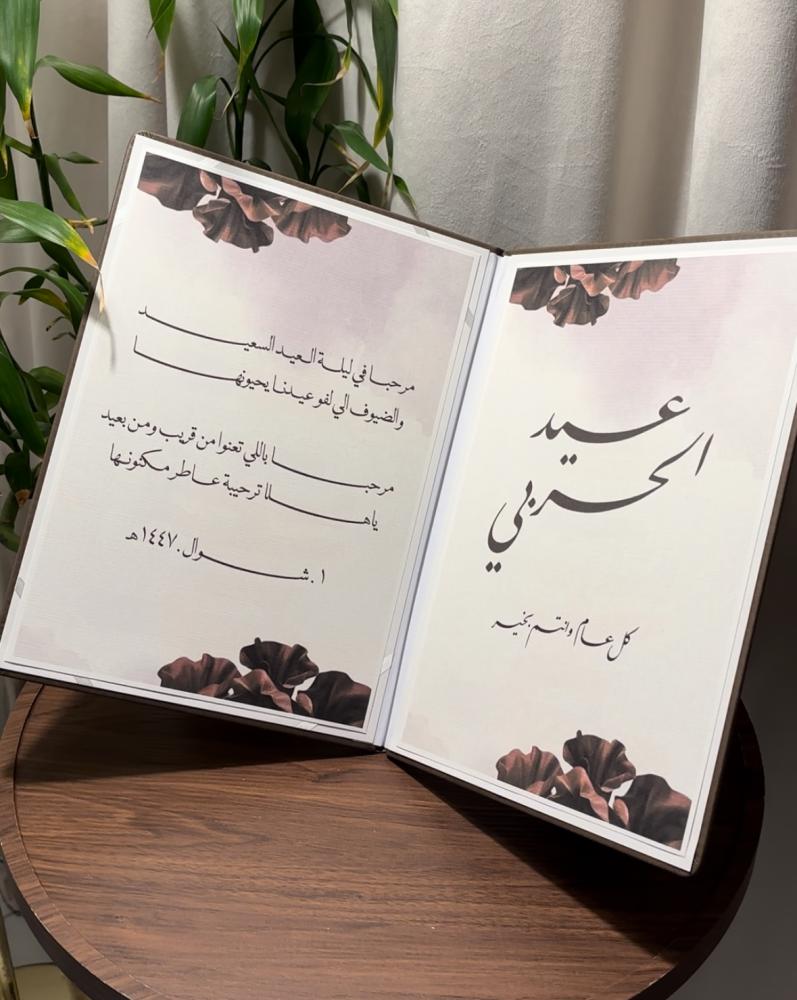 عيد
الحربي
كل عام وانتم بخير
مرحبا في ليلة العيد السعيد
والضيوف الي لفو عيدنا يحيونها
مرحبا باللي تعنوا من قريب ومن بعيد
ياهلا ترحيبة عاطر مكنونها
١. شوال. ١٤٤٧هـ